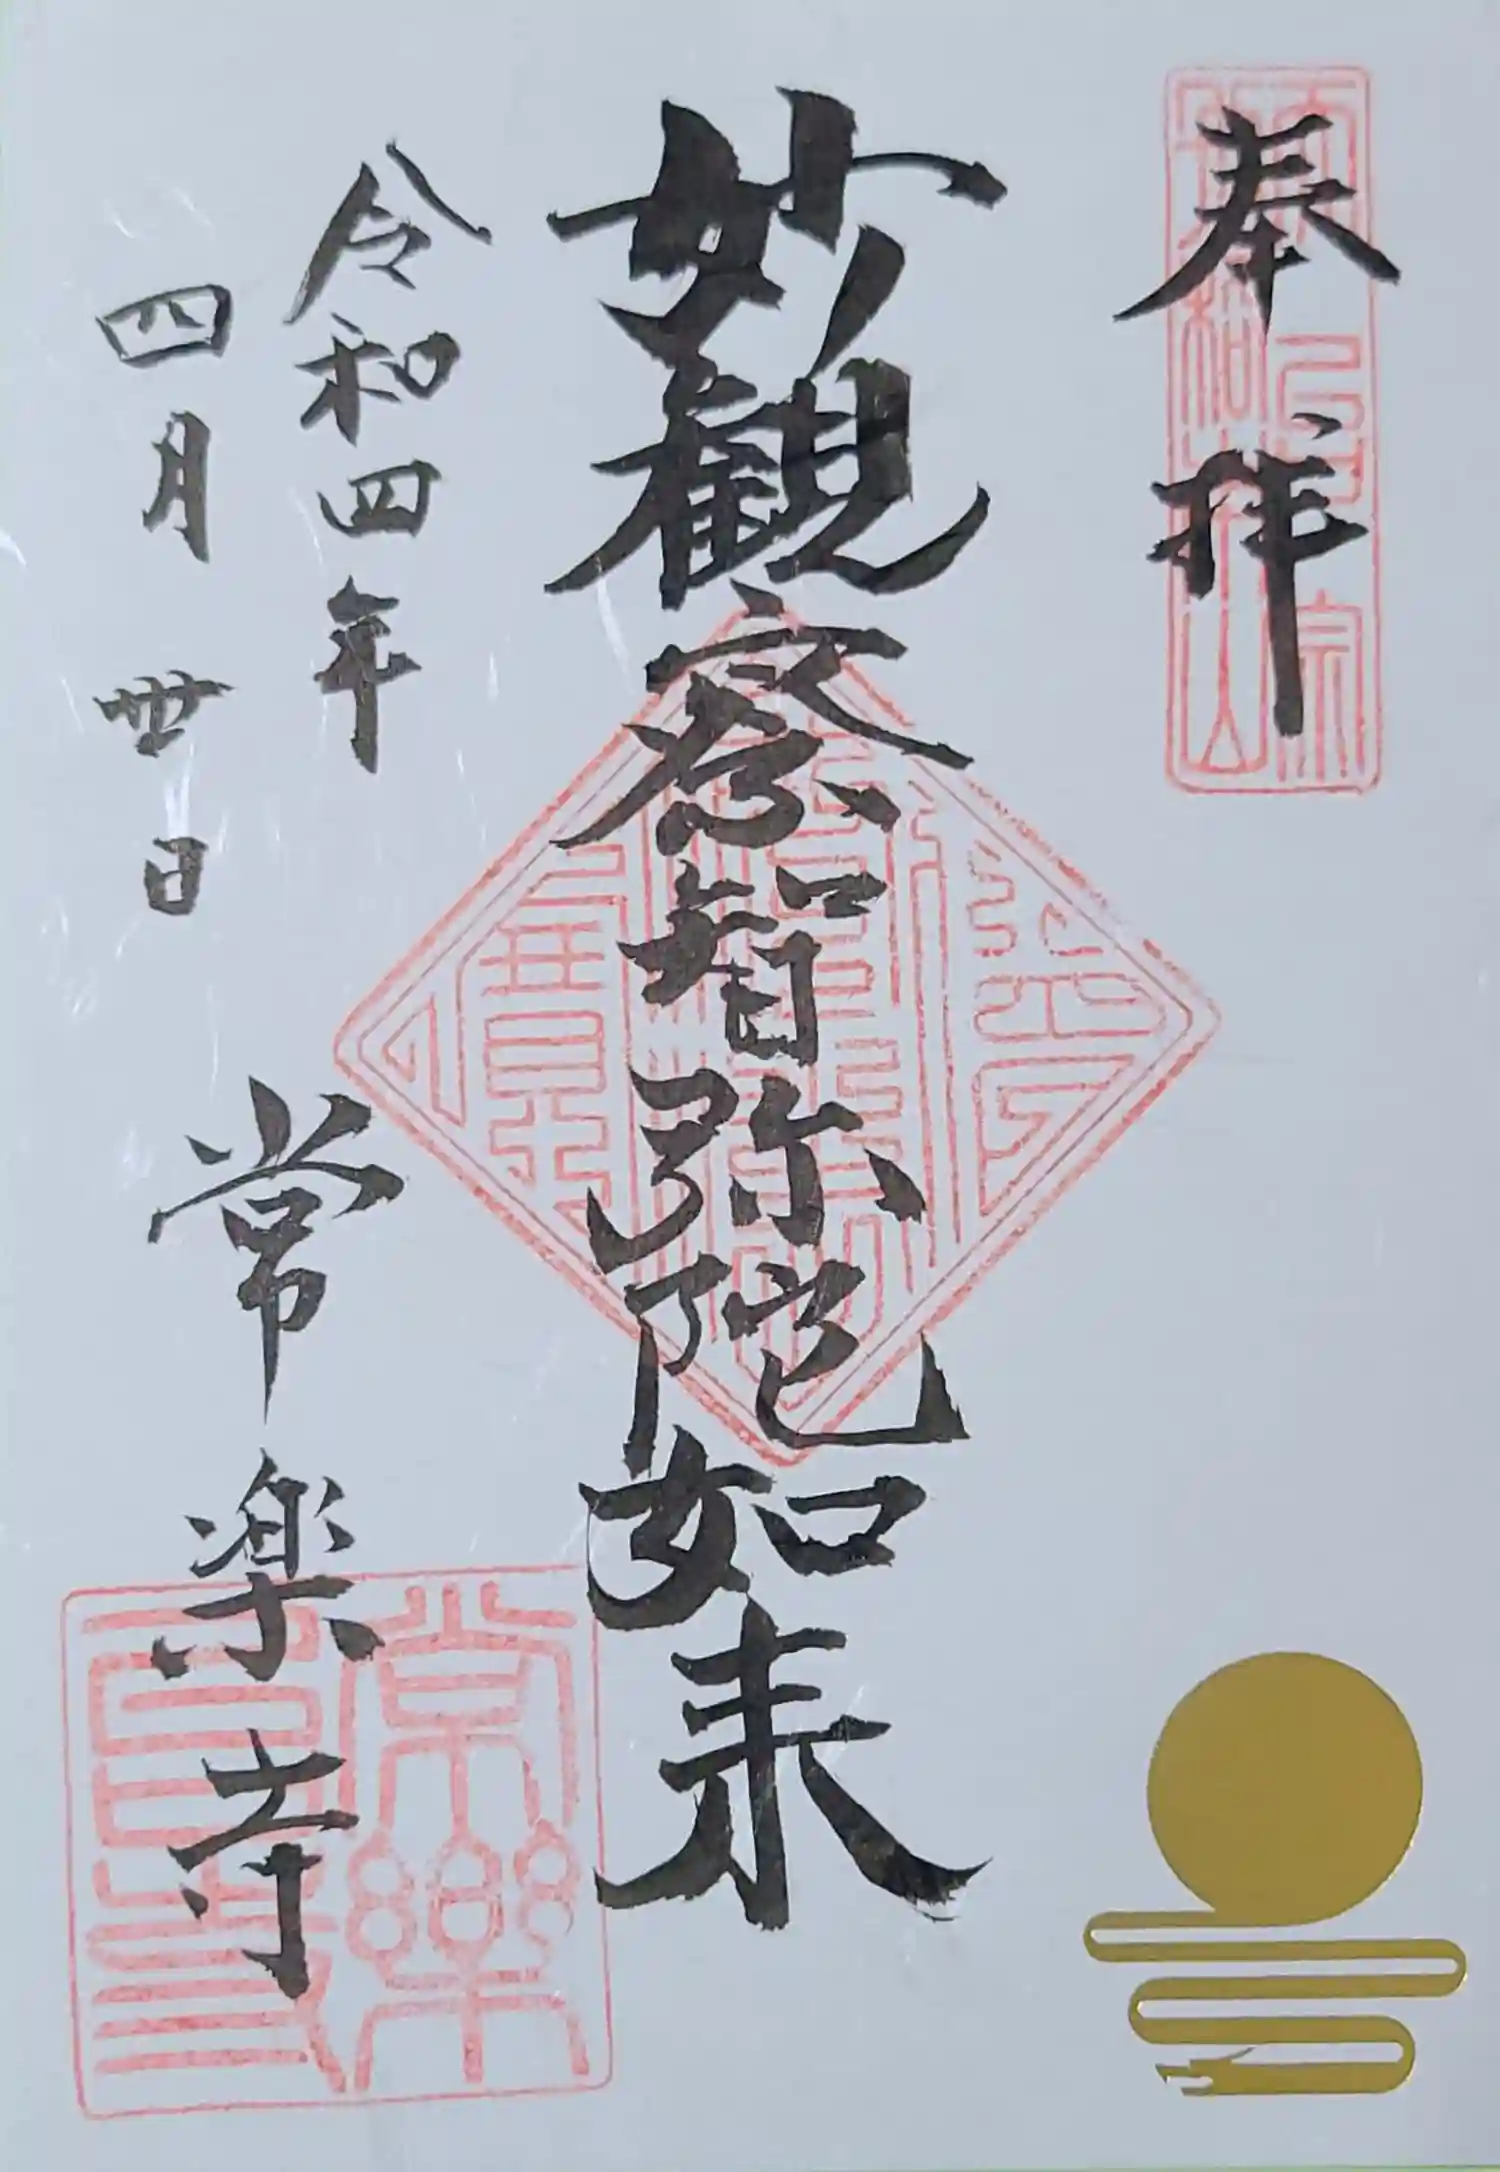 奉拝
妙観察智弥陀如来
令和四年
四月卅日
常楽寺